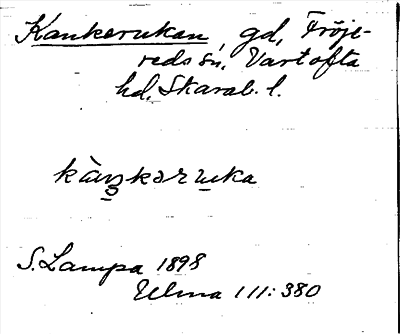 Kankerukan, gd, Fröje-
reds sn, Vartofta
hd, Skarab. l.
kàŋkəruka
S. Lampa 1898
Ulma 111:380